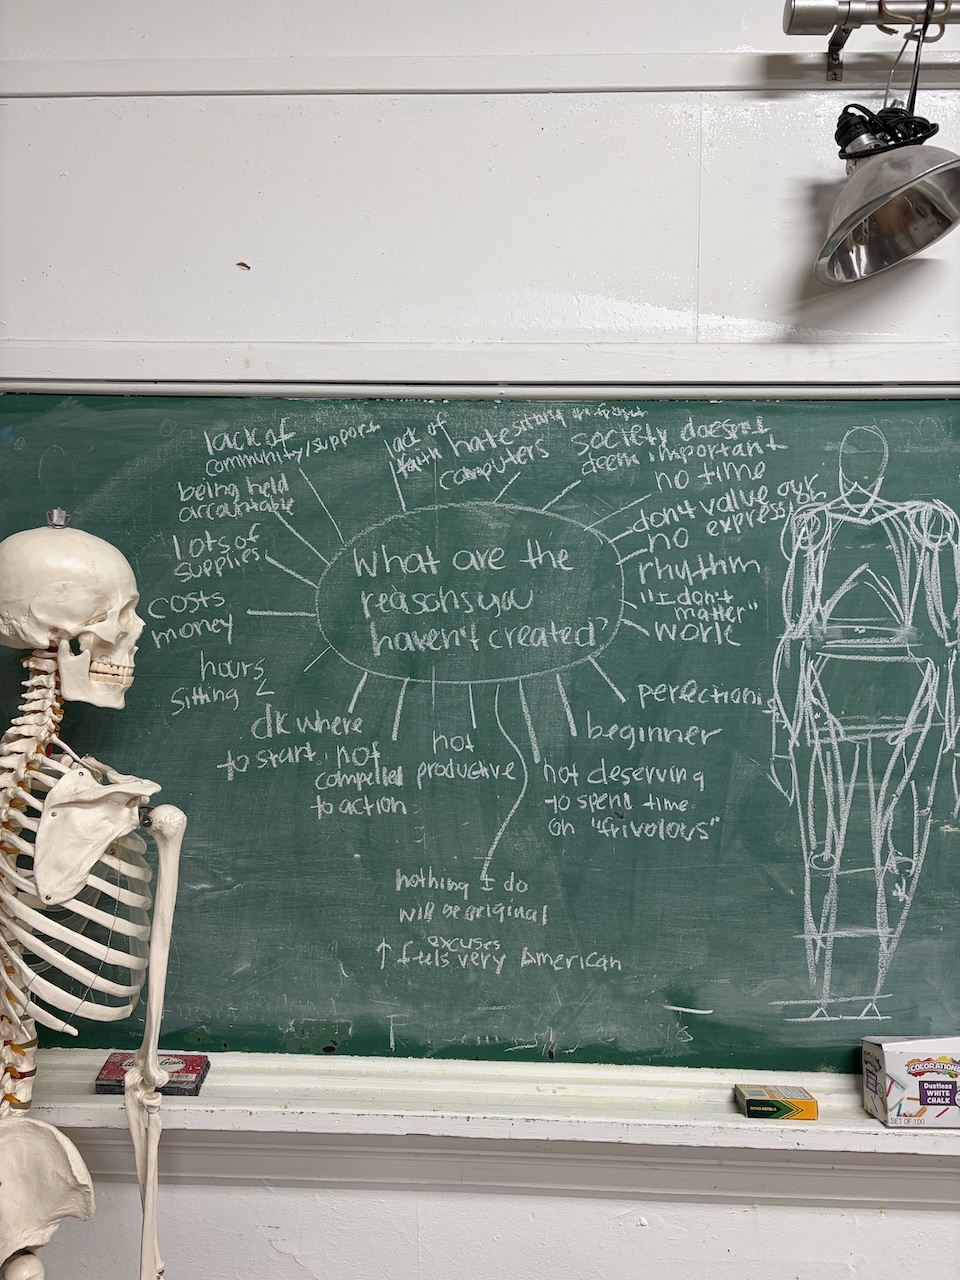 What are the
reasons you
haven't created?
lack of
community/support
lack of
faith
hate sitting in front
computers
society doesn't
deem important
no time
don't value our
expression
no
rhythm
"I don't
matter"
work
perfectionism
beginner
not deserving
to spend time
on "frivolous"
nothing I do
will be original
excuses
↑ feels very American
not
productive
not
compelled
to action
dk where
to start
hours
sitting
costs
money
lots of
supplies
being held
accountable
COLORATIONS
Dustless
WHITE
CHALK
SET OF 100